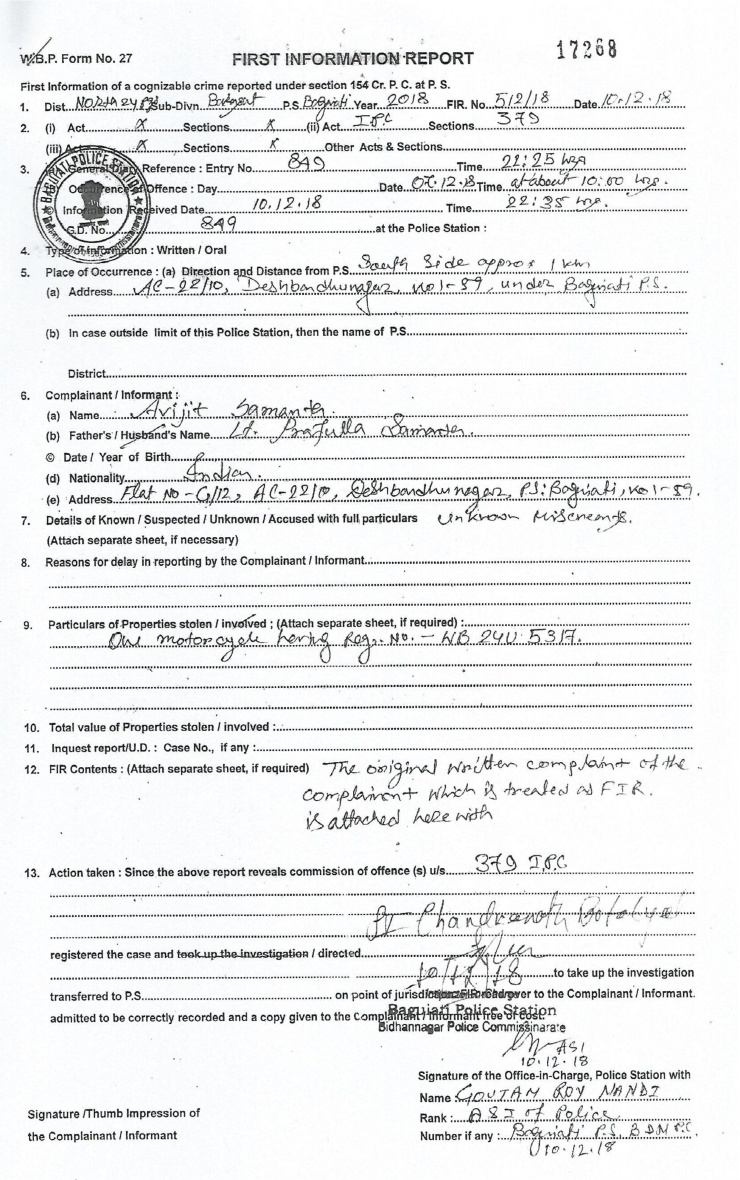 W.B.P. Form No. 27
FIRST INFORMATION REPORT
17268
First Information of a cognizable crime reported under section 154 Cr. P. C. at P. S.
1. Dist. NORTH 24 PGS Sub-Divn. Barasat P.S. Baguiati Year 2018 FIR. No 512/18 Date 10.12.18
2. (i) Act X Sections X (ii) Act IPC Sections 379
(iii) Act X Sections X Other Acts & Sections
3. (a) General Diary Reference : Entry No. 849 Time 22:25 hrs
Occurrence of Offence : Day Date 07.12.18 Time at about 10:00 hrs.
© Information Received Date 10.12.18 Time 22:35 hrs.
G.D. No. 849 at the Police Station :
BAGUIATI POLICE STATION
4. Type of Information : Written / Oral
5. Place of Occurrence : (a) Direction and Distance from P.S. South Side approx 1 km
(a) Address AC-22/10, Deshbandhunagar, Kol-59, under Baguiati P.S.
(b) In case outside limit of this Police Station, then the name of P.S.
District
6. Complainant / Informant :
(a) Name Avijit Samanta.
(b) Father's / Husband's Name Lt. Prafulla Samanta.
© Date / Year of Birth
(d) Nationality Indian.
(e) Address Flat No - G/12, AC-22/10, Deshbandhunagar, P.S: Baguiati, Kol-59.
7. Details of Known / Suspected / Unknown / Accused with full particulars Unknown Miscreants.
(Attach separate sheet, if necessary)
8. Reasons for delay in reporting by the Complainant / Informant
9. Particulars of Properties stolen / involved : (Attach separate sheet, if required) :
One motorcycle having Reg. No. - WB 24U 5317.
10. Total value of Properties stolen / involved :
11. Inquest report/U.D. : Case No., if any :
12. FIR Contents : (Attach separate sheet, if required) The original written complaint of the
complainant which is treated as FIR.
is attached here with
13. Action taken : Since the above report reveals commission of offence (s) u/s 379 IPC
SI Chandranath
registered the case and took up the investigation / directed
10/12/18 to take up the investigation
transferred to P.S. on point of jurisdiction FIR read over to the Complainant / Informant.
admitted to be correctly recorded and a copy given to the Complainant / Informant free of cost.
Baguiati Police Station
Bidhannagar Police Commissinarate
ASI
10.12.18
Signature of the Office-in-Charge, Police Station with
Name GOUTAM ROY NANDI
Rank : ASI of Police
Number if any : Baguiati P.S. BDN P.C
10.12.18
Signature /Thumb Impression of
the Complainant / Informant